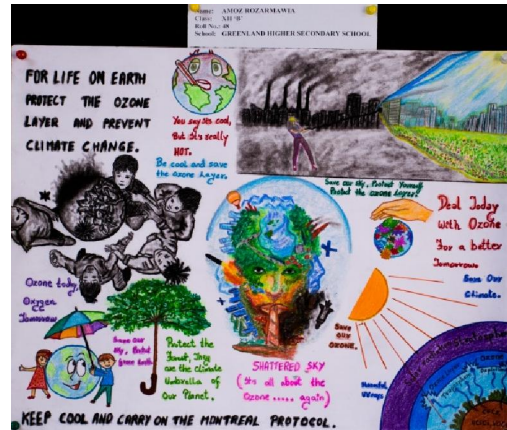 Name: AMOZ ROZARMAWIA
Class: XII 'B'
Roll No.: 48
School: GREENLAND HIGHER SECONDARY SCHOOL
FOR LIFE ON EARTH
PROTECT THE OZONE
LAYER AND PREVENT
CLIMATE CHANGE.
You say its cool,
But Its really
HOT.
Be cool and save
the ozone layer.
Save our sky, Protect Yourself
Protect the ozone layer!
Deal Today
with Ozone
For a better
Tomorrow
Save Our
Climate.
Ozone today,
Oxygen
Tomorrow
Save our
sky, Protect
Green Earth
Protect the
Forest, They
are the climate
Umbrella of
Our Planet.
SHATTERED SKY
(Its all about the
Ozone ..... again)
SAVE
OUR
OZONE.
Harmful
KEEP COOL AND CARRY ON THE MONTREAL PROTOCOL.